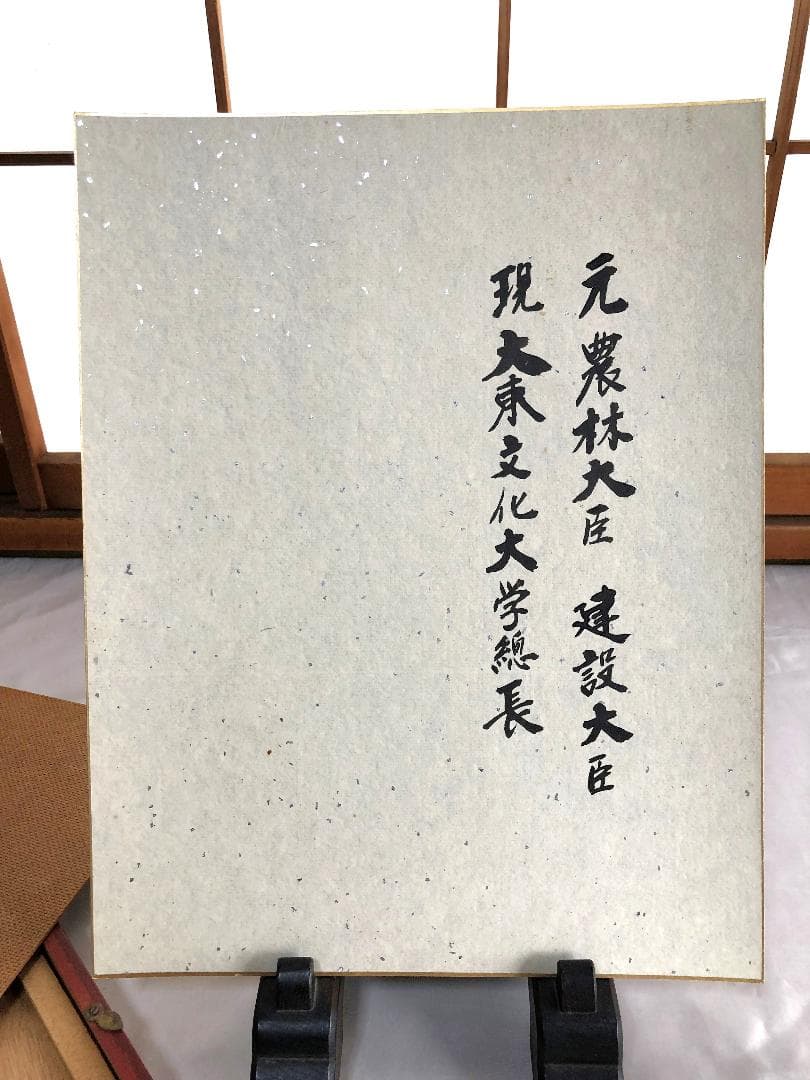 元農林大臣 建設大臣
現大東文化大学總長